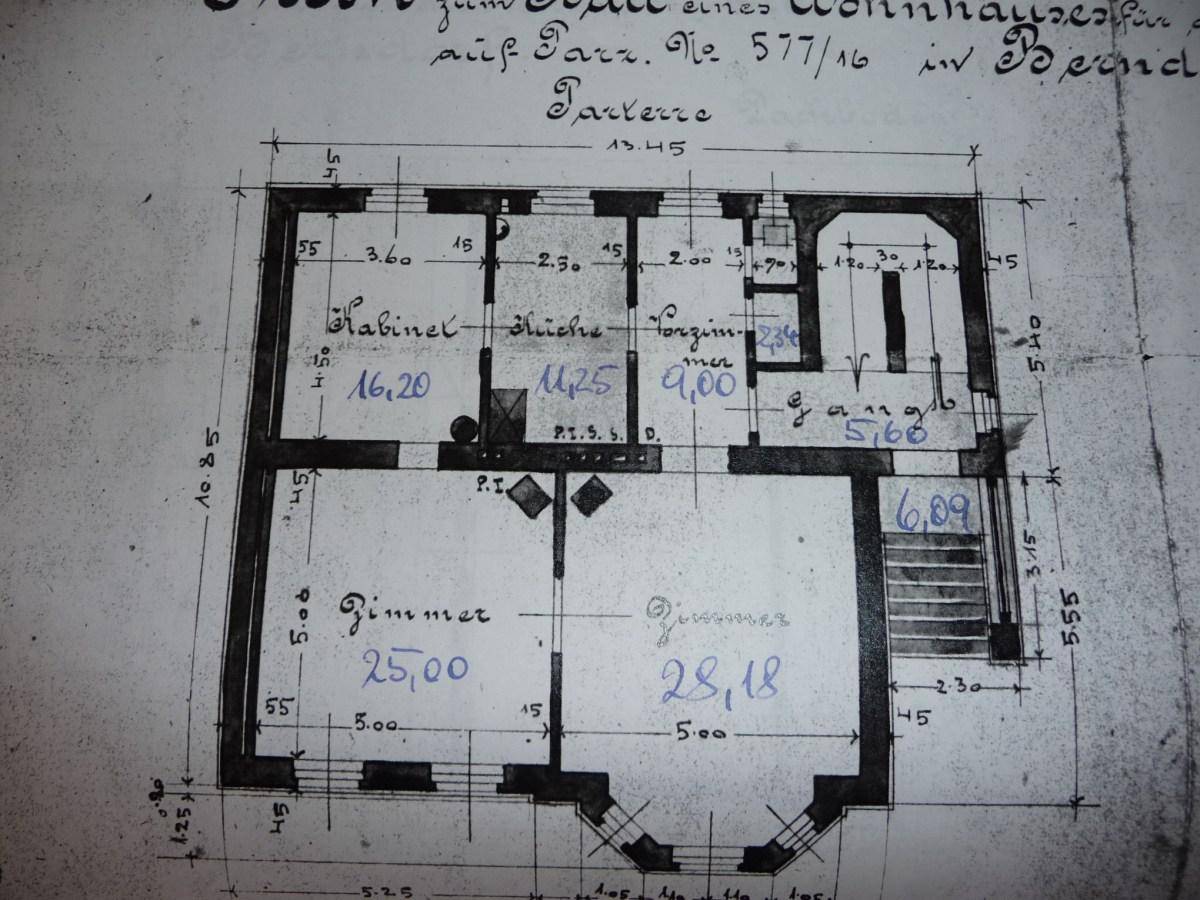 zum Bau eines Wohnhauses für
auf Parz. No 577/16 in Bernd
Parterre
13.45
45
55 3.60 15 2.50 15 2.00 15 90 1.20 30 1.20 45
Kabinet Küche Vorzim-
mer
2,34
5.40
4.50
16,20 11,25 9,00
Gang
5,60
P.I.S.S. D.
10.85
45
P.I.
6,09
3.15
5.55
5.00
Zimmer Zimmer
25,00 28,18
2.30
55 5.00 15 5.00 45
0.20
1.25
45
5.25 1.05 1.10 1.10 1.05